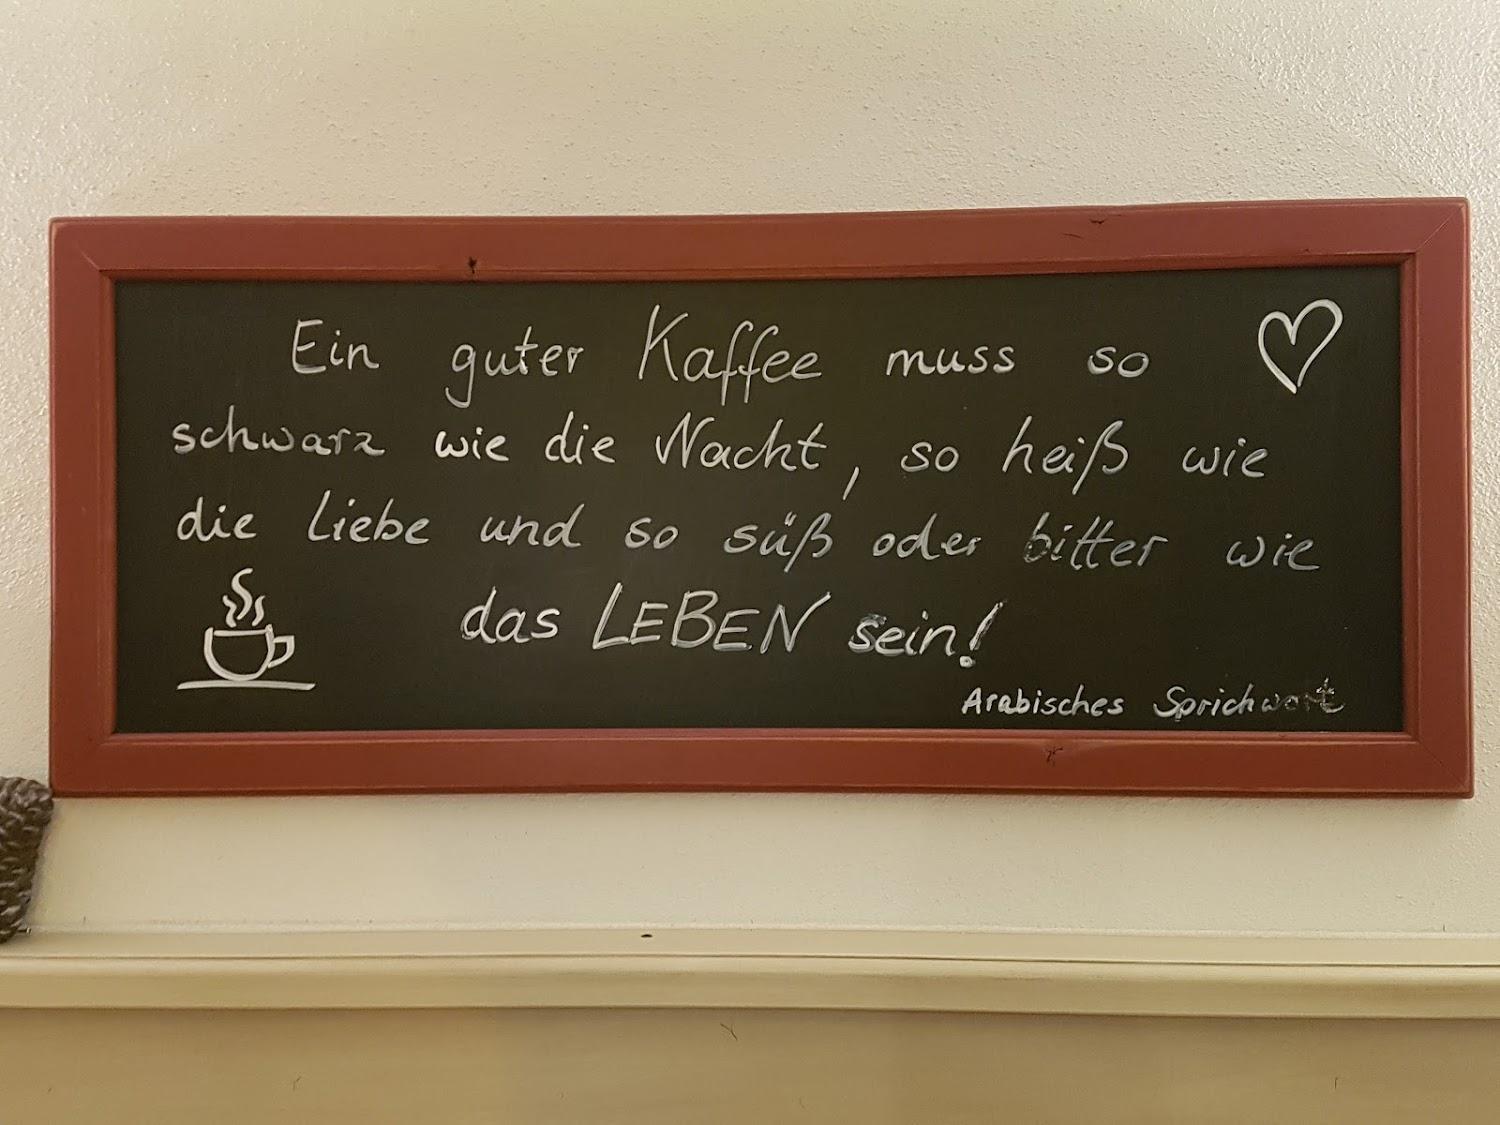 Ein guter Kaffee muss so
schwarz wie die Nacht, so heiß wie
die Liebe und so süß oder bitter wie
das LEBEN sein!
Arabisches Sprichwort